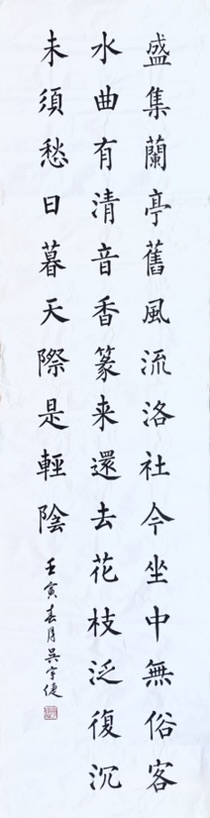 盛集蘭亭舊風流洛社今坐中無俗客
水曲有清音香篆来還去花枝泛復沉
未須愁日暮天際是輕陰
壬寅春月吳宇